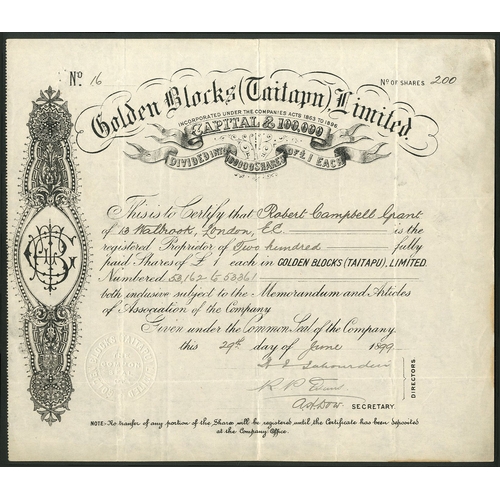 No. 16
No OF SHARES 200
Golden Blocks (Taitapu), Limited.
INCORPORATED UNDER THE COMPANIES ACTS 1862 TO 1898
CAPITAL £100,000
DIVIDED INTO 100000 SHARES OF £1 EACH
This is to Certify that Robert Campbell Grant
of 13 Walbrook, London, E.C. is the
registered Proprietor of Two hundred fully
paid Shares of £1 each in GOLDEN BLOCKS (TAITAPU), LIMITED.
Numbered 53,162 to 53361
both inclusive subject to the Memorandum and Articles
of Association of the Company
Given under the Common Seal of the Company.
this 29th day of June 1899
DIRECTORS
SECRETARY.
NOTE:- No transfer of any portion of the Shares will be registered until the Certificate has been deposited
at the Company's Office.